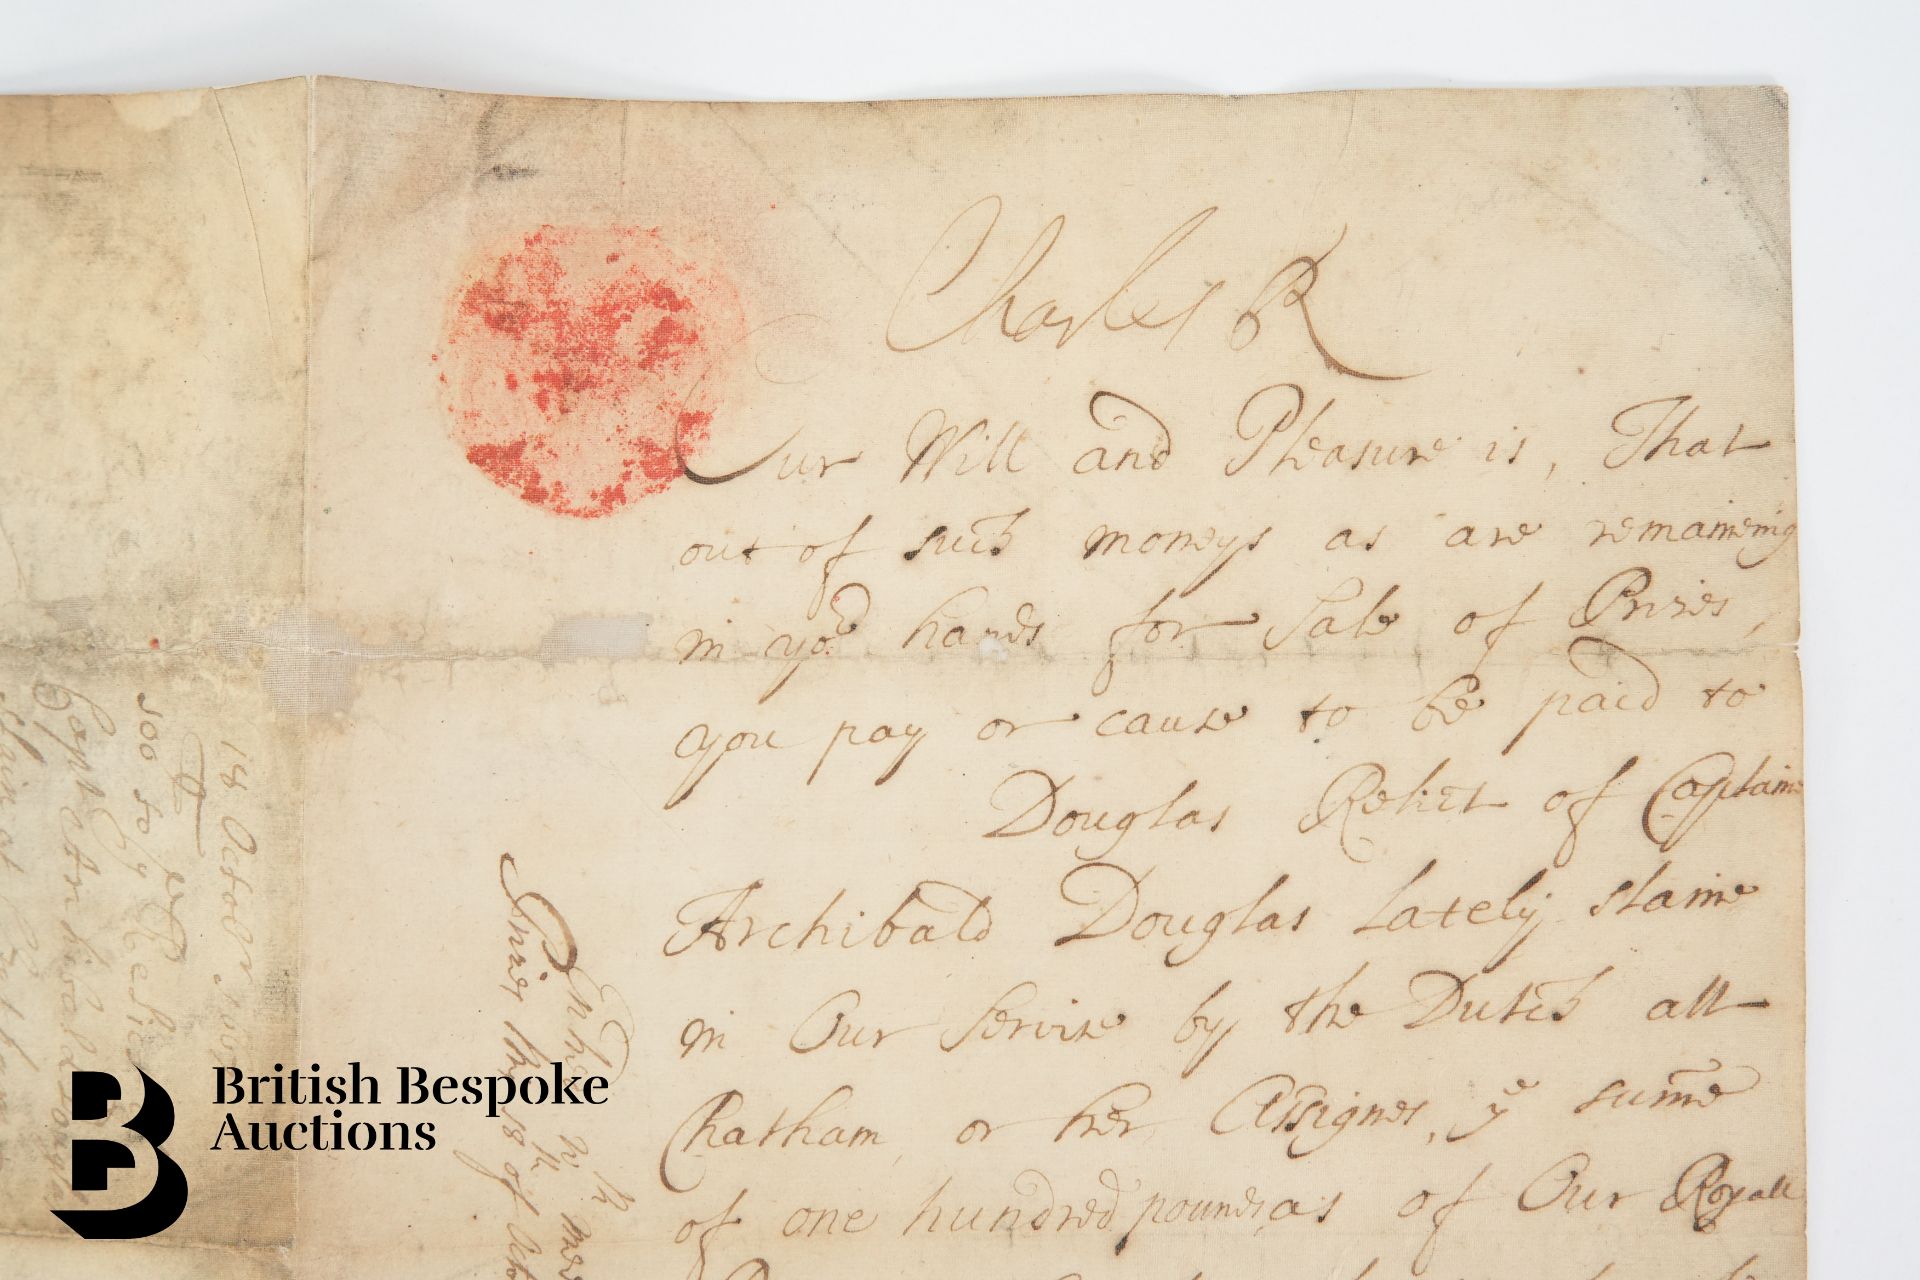 Charles R
Our Will and Pleasure is, That
out of such moneys as are remaineing
in yor hands for Sale of Prizes,
you pay or cause to be paid to
Douglas Relict of Captaine
Archibald Douglas lately slaine
in Our Service by the Dutch att
Chatham or her Assignes, ye sume
of one hundred pounds, as of Our Royall
18 October
100 to ye Relict
Capt Archibald Dougla
slain at Chatham
18th of Octo
British Bespoke
Auctions